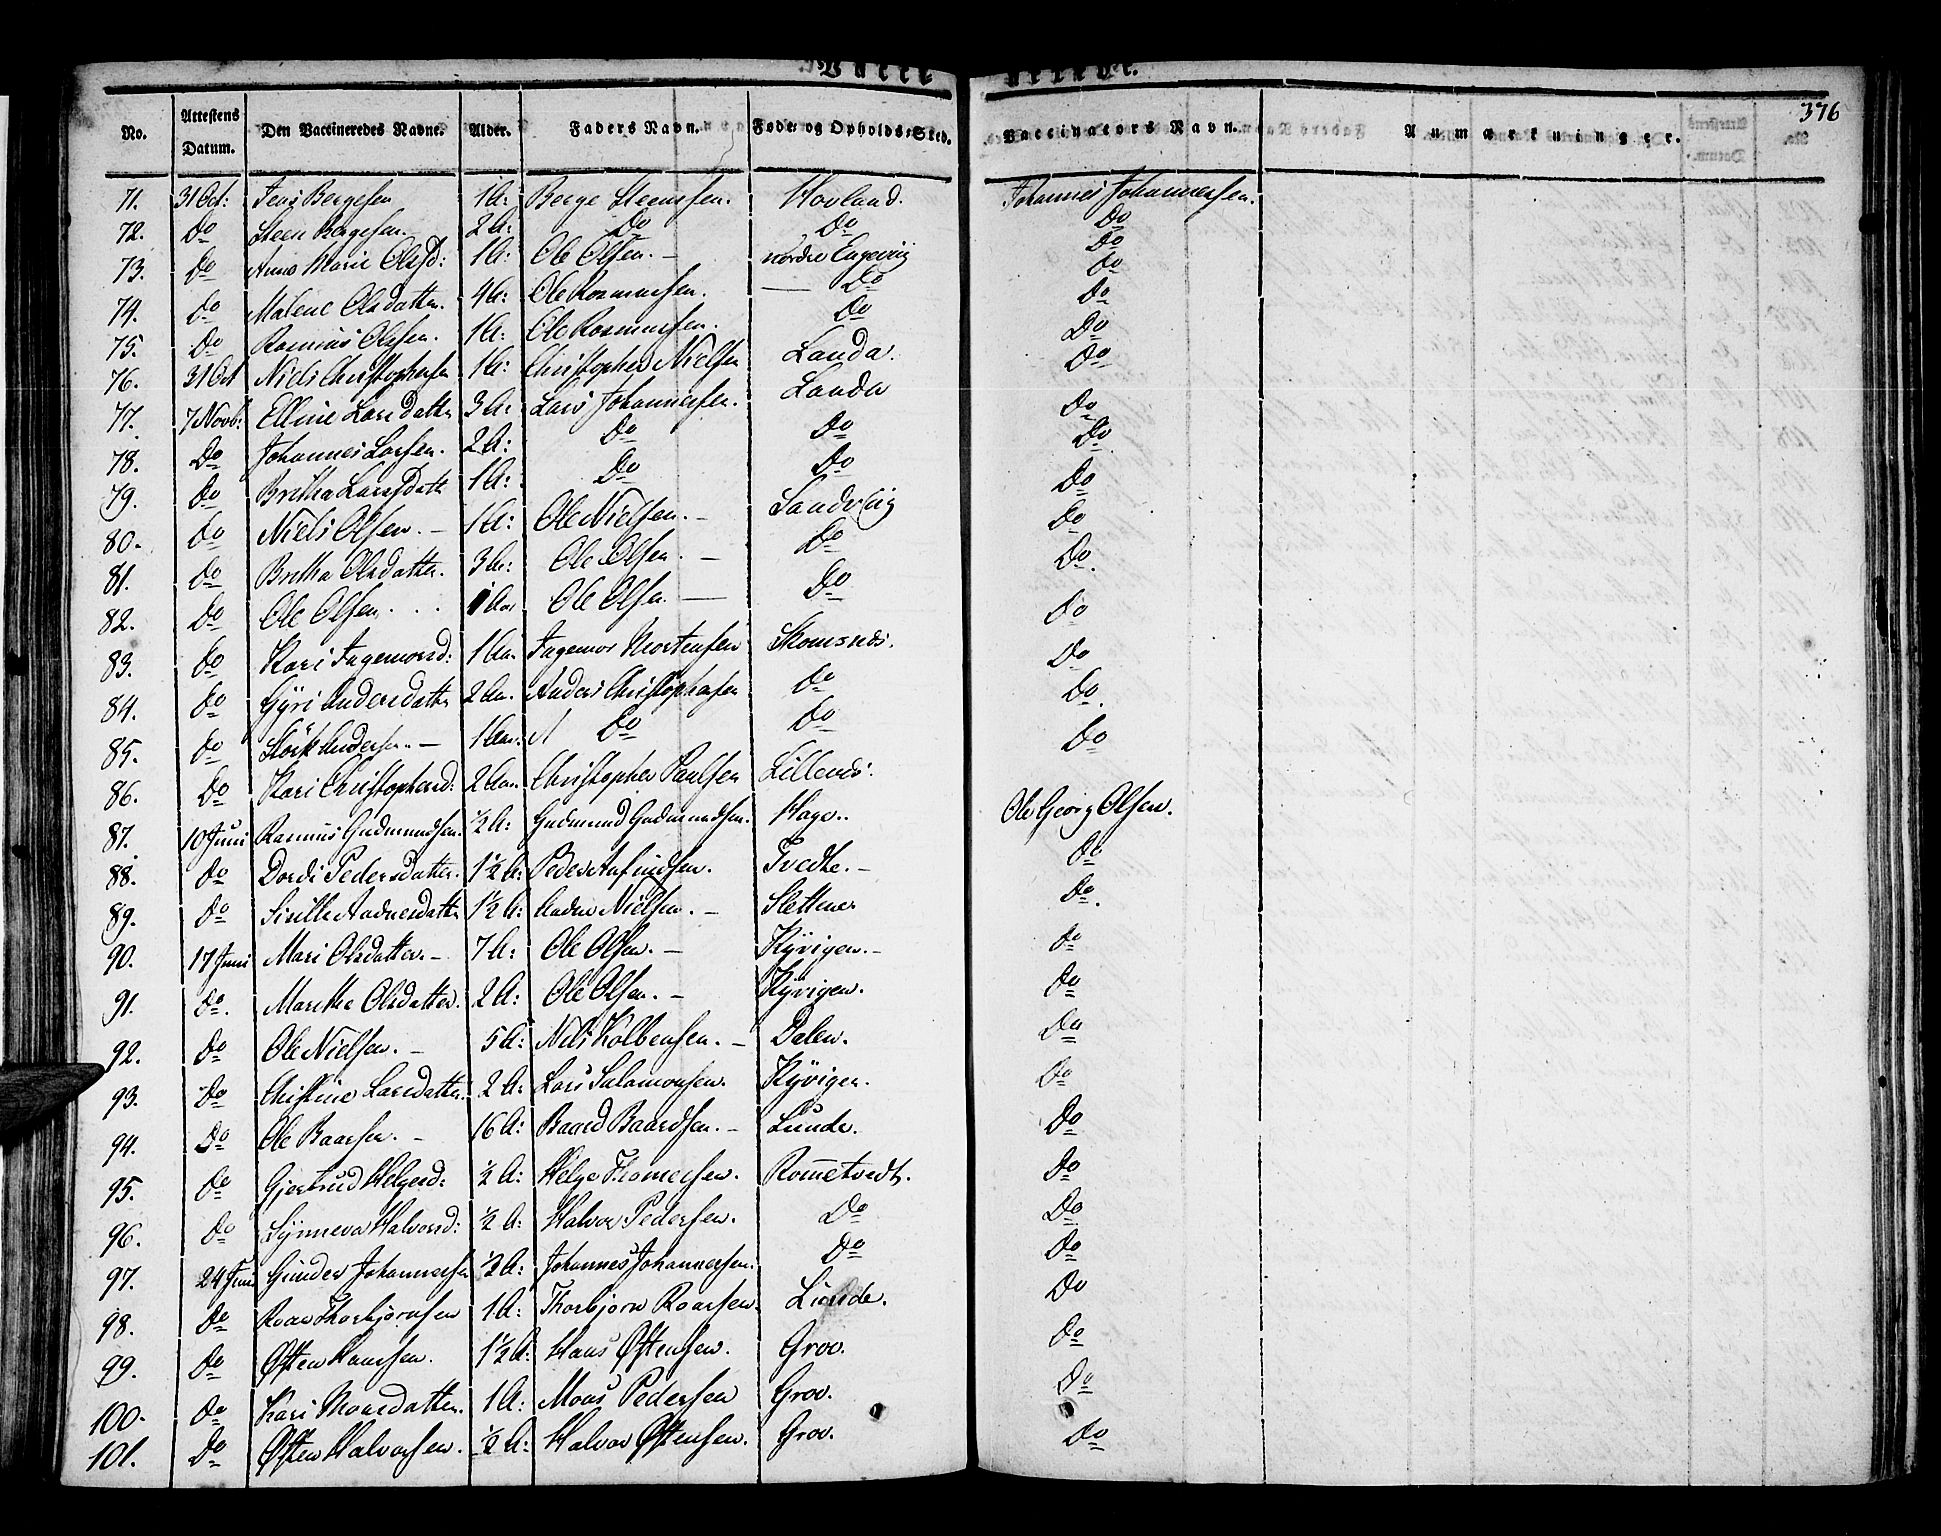 Vacci nerede.
376
No. Attestens Datum. Den Vaccineredes Navne. Alder. Faders Navn. Føde- og Opholds-Sted. Vaccinators Navn. Anmærkninger.
71. 31 Oct: Jens Bergesen 1 A: Berge Steensen. Hovland. Johannes Johannessen.
72. Do Steen Bergesen. 2 A: Do Do Do
73. Do Anne Marie Olsd: 1 A: Ole Olsen. – nordre Engevig Do
74. Do Malene Olsdatter 4 A: Ole Rasmussen. — Do Do
75. Do Rasmus Olsen. 1 A: Ole Rasmussen. Do Do
76. 31 Oct Niels Christophersen 1 A: Christopher Nielsen Landa. Do
77. 7 Novb: Elline Larsdatter 3 A: Lars Johannessen. Landa Do
78. Do Johannes Larsen. 2 A: Do Do Do
79. Do Britha Larsdatt 1 A: Do Do Do
80. Do Niels Olsen. – 1 A: Ole Nielsen. – Sandvig Do
81. Do Britha Olsdatter. 3 A: Ole Olsen. – Do Do
82. Do Ole Olsen. . . 1 Aar Ole Olsen. — Do Do.
83. Do Kari Ingemorsd: 1 Aar Ingemor Mortensen Skomsnæs. Do
84. Do Gÿri Andersdatter 2 Aar. Anders Christophersen Do Do
85. Do Størk Andersen. – 1 Aar. Do Do Do.
86. Do Kari Christophersd: 2 Aar. Christopher Paulsen Lillenæs. Do
87. 10 Juni Rasmus Gudmundsen. ½ A: Gudmund Gudmundsen. Hage.. Ole Georg Olsen.
88. Do Dordi Pedersdatter. 1½ A: Peder Anfindsen. Tvedte. – Do
89. Do Sirille Aadnesdatter 1½ A: Aadne Nielsen. – Slettnes Do.
90. 17 Juni Mari Olsdatter. – 7 A: Ole Olsen. – Kÿvigen. – Do
91. Do. Marithe Olsdatter. 2 A: Ole Olsen. – Kÿvigen. Do
92. Do Ole Nielsen. – 5 A: Niels Kolbensen. – Dalen. Do
93. Do Christine Larsdatter. 2 A: Lars Salamonsen. Kÿvigen. Do
94. Do Ole Baarsen. – 16 A: Baard Baardsen. – Lunde. Do
95. Do Gjertrud Helgesd: ½ A: Helge Thomessen. Rometvedt. Do
96. Do Sÿnneva Halvorsd: ½ A: Halvor Pedersen. Do Do
97. 24 Juni Gunder Johannessen ½ A: Johannes Johannessen. Do Do
98. Do Roar Thorbjørnsen 1 A: Thorbjørn Roarsen. Lunde. Do
99. Do Østen Hansen. 1½ A: Hans Østensen. Grov. Do
100. Do Kari Monsdatter. 1 A: Mons Pedersen Grov. Do
101. Do Østen Halvorsen. ½ A: Halvor Østensen. Grov. Do